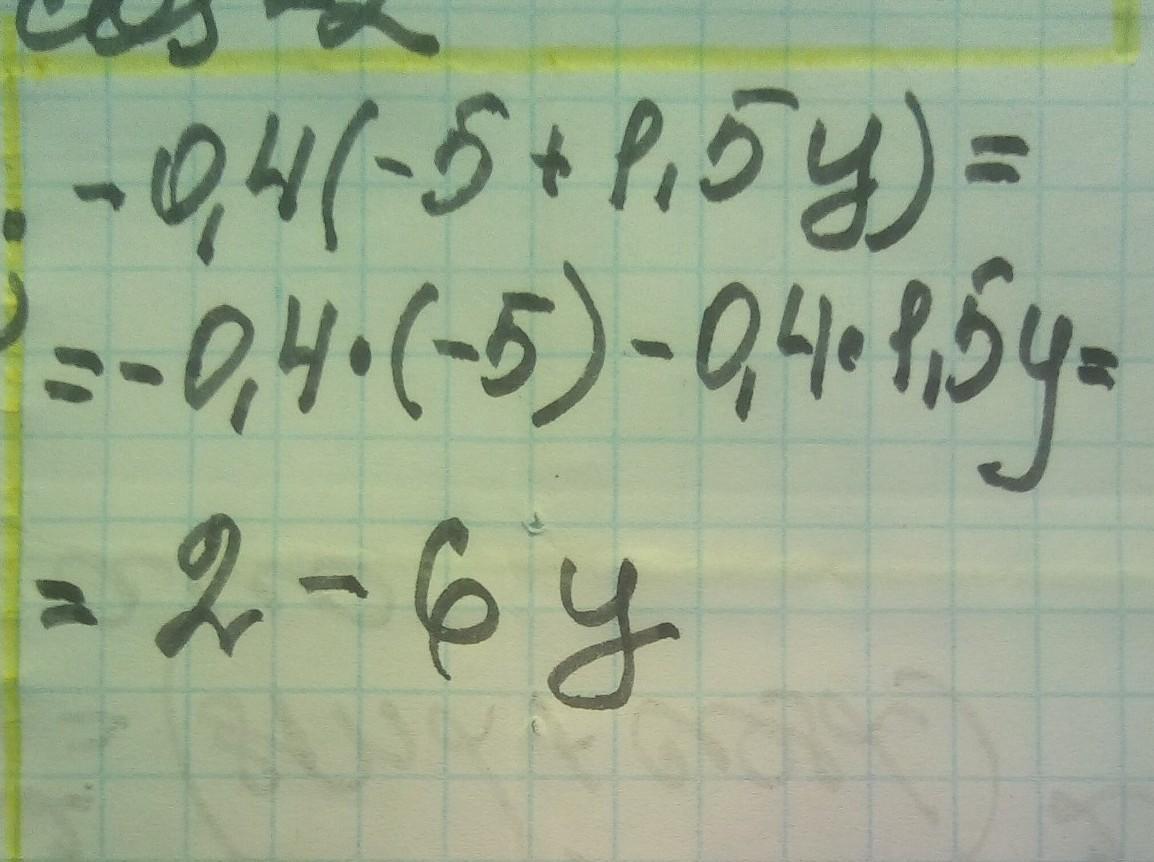 -0,4(-5+1,5y)=
=-0,4·(-5)-0,4·1,5y=
=2-6y